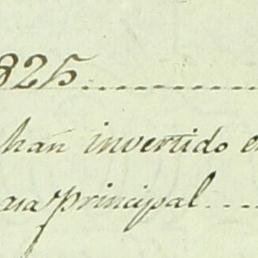 825
han invertido e
principal